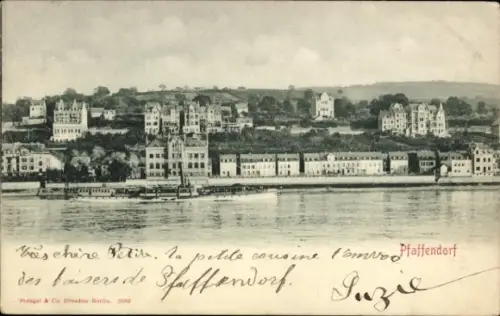 Pfaffendorf
Très chère Petite. ta petite cousine t'envoie
des baisers de Pfaffendorf
Suzie
Stengel & Co. Dresden-Berlin.